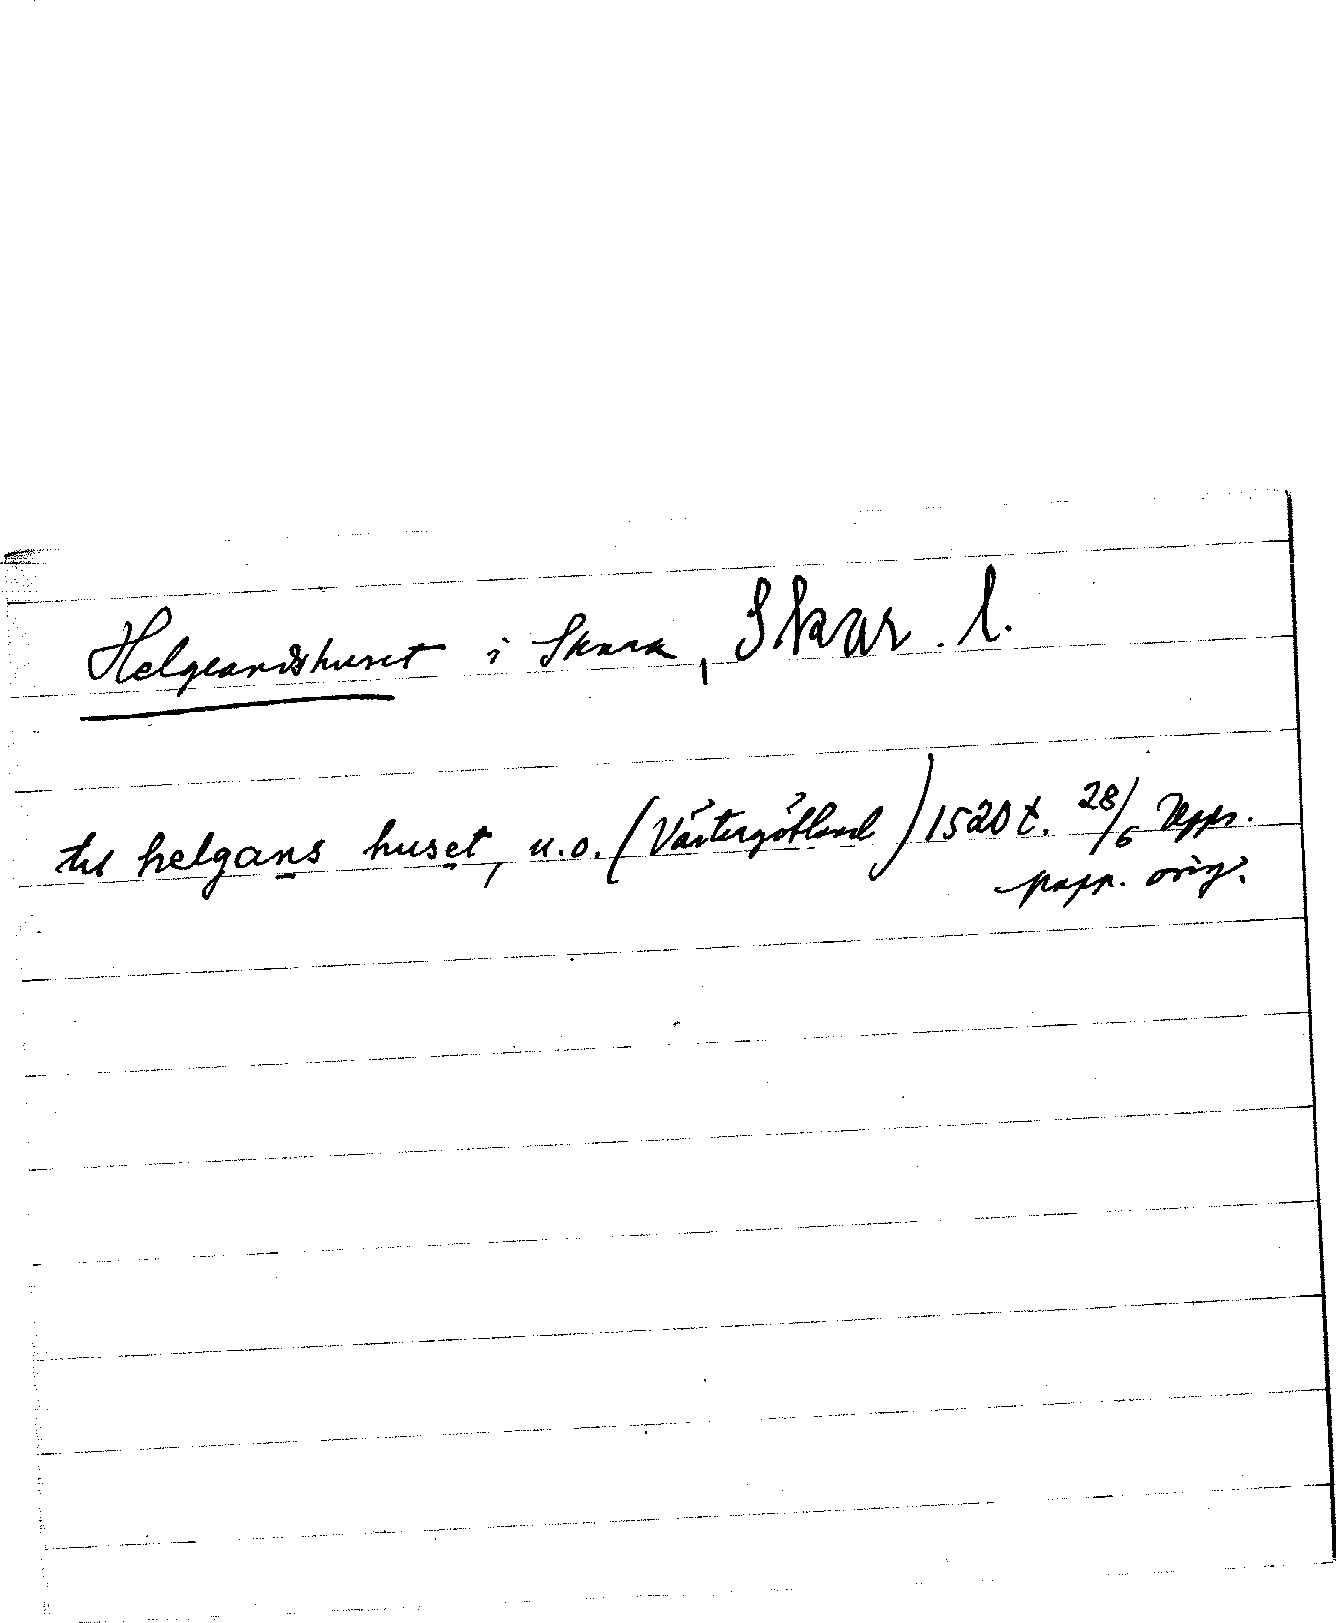 Helgeandshuset i Skara, Skar. l.
til helgans huset, u.o. (Västergötland) 1520 t. 28/6 Upps.
papp. orig.